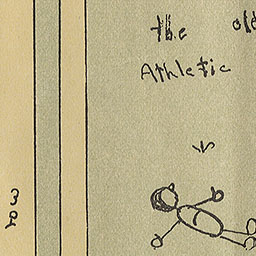 the old
Athletic